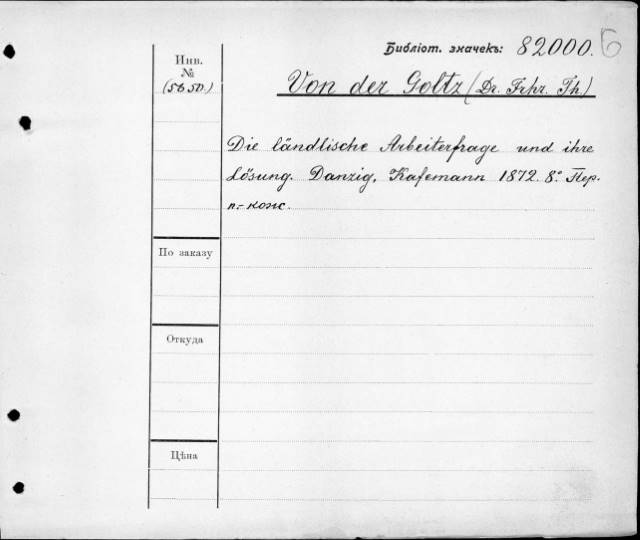 Библіот. значекъ: 82000. Б
Инв.
№
(5650.)
Von der Goltz (Dr. Frhr. Th.)
Die ländlische Arbeiterfrage und ihre
Lösung. Danzig, Kafemann 1872. 8.° Пер.
п.-кожс.
По заказу
Откуда
Цѣна